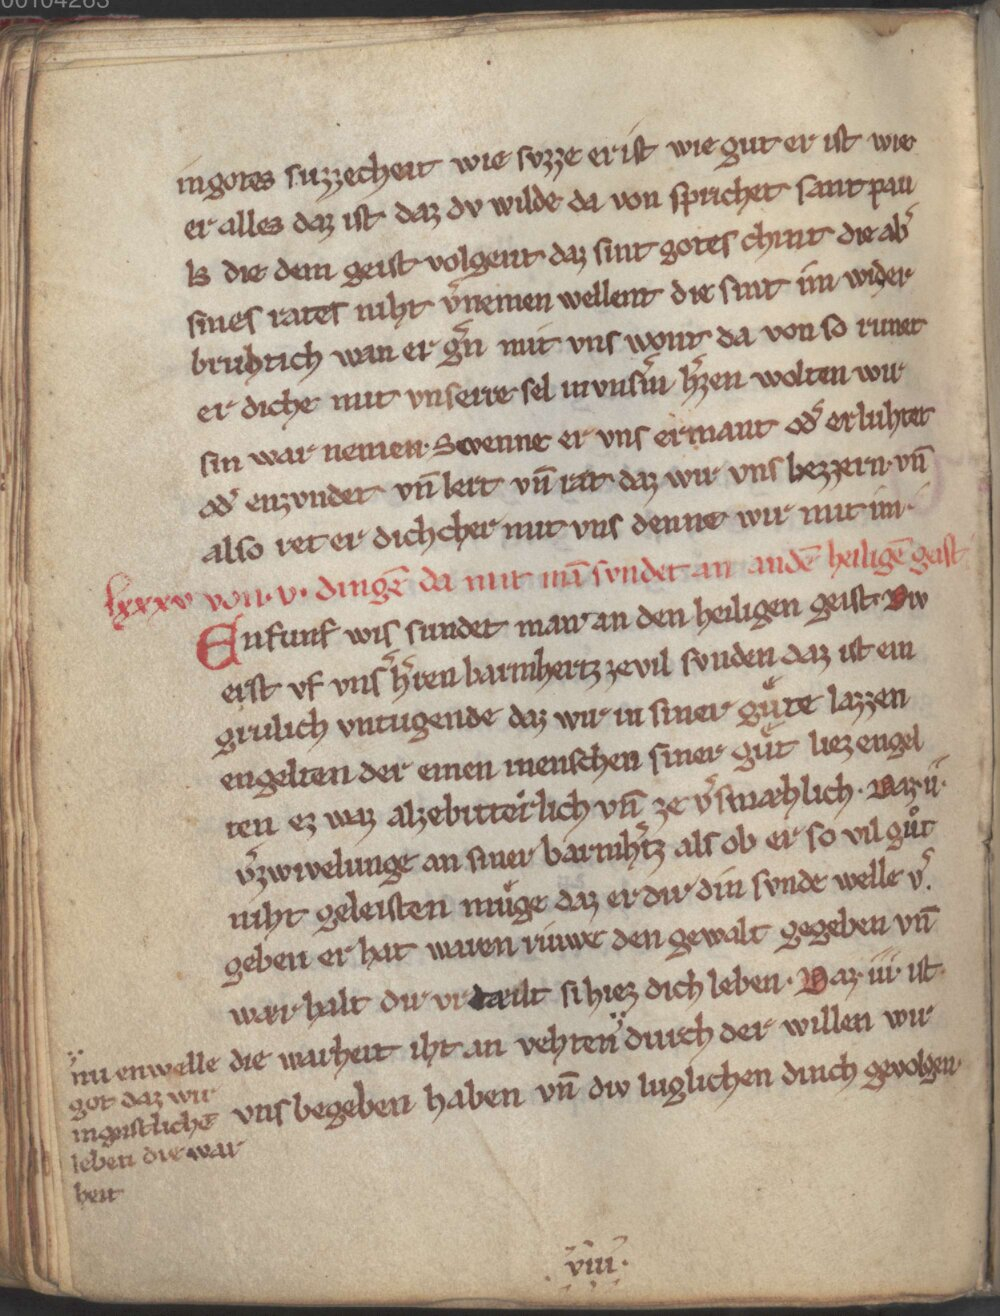 00104263
in gotes suzzecheit wie svzze er ist wie gut er ist wie
er alles daz ist daz dv wilde da von sprichet sant pau
ls die dem geist volgent daz sint gotes chint die abˀ
sines rates niht v̾nemen wellent die sint im wider
bruhtich wan er g̾n mit vns wont da von so runet
er diche mit vnserre sel in vnsˀm hˀzen wolten wir
sin war nemen. Swenne er vns ermant odˀ erluhtet
odˀ enzvndet vn̄ lert vn̄ rat daz wir vns bezzern. vn̄
also ret er dichcher mit vns denne wir mit im.
lxxxv von .v. dingē da mit mā svndet an an dē heiligē geist
En funf wis sundet man an den heiligen geist. Div
erst vf vnsˀs hˀren barmhertz ze vil svnden daz ist ein
grulich vntugende daz wir in siner gůte lazzen
engelten der einen menschen siner gůt liez engel
ten ez waz alze bitterlich vn̄ ze vˀsmæhlich. Daz .ii.
vˀzwivelunge an siner barmhˀtz als ob er so vil gůt
niht geleisten muͤge daz er dir din svnde welle vˀ.
geben er hat waren riuwe den gewalt gegeben vn̄
war halt dir vrtæilt si hiez dich leben. Daz .iii. ist
die warheit iht an vehten durch der willen wir
vns begeben haben vn̄ div luglichen durch gevolgen.
nu enwelle
got daz wir
in geistlichē
leben die war
heit
.viii.